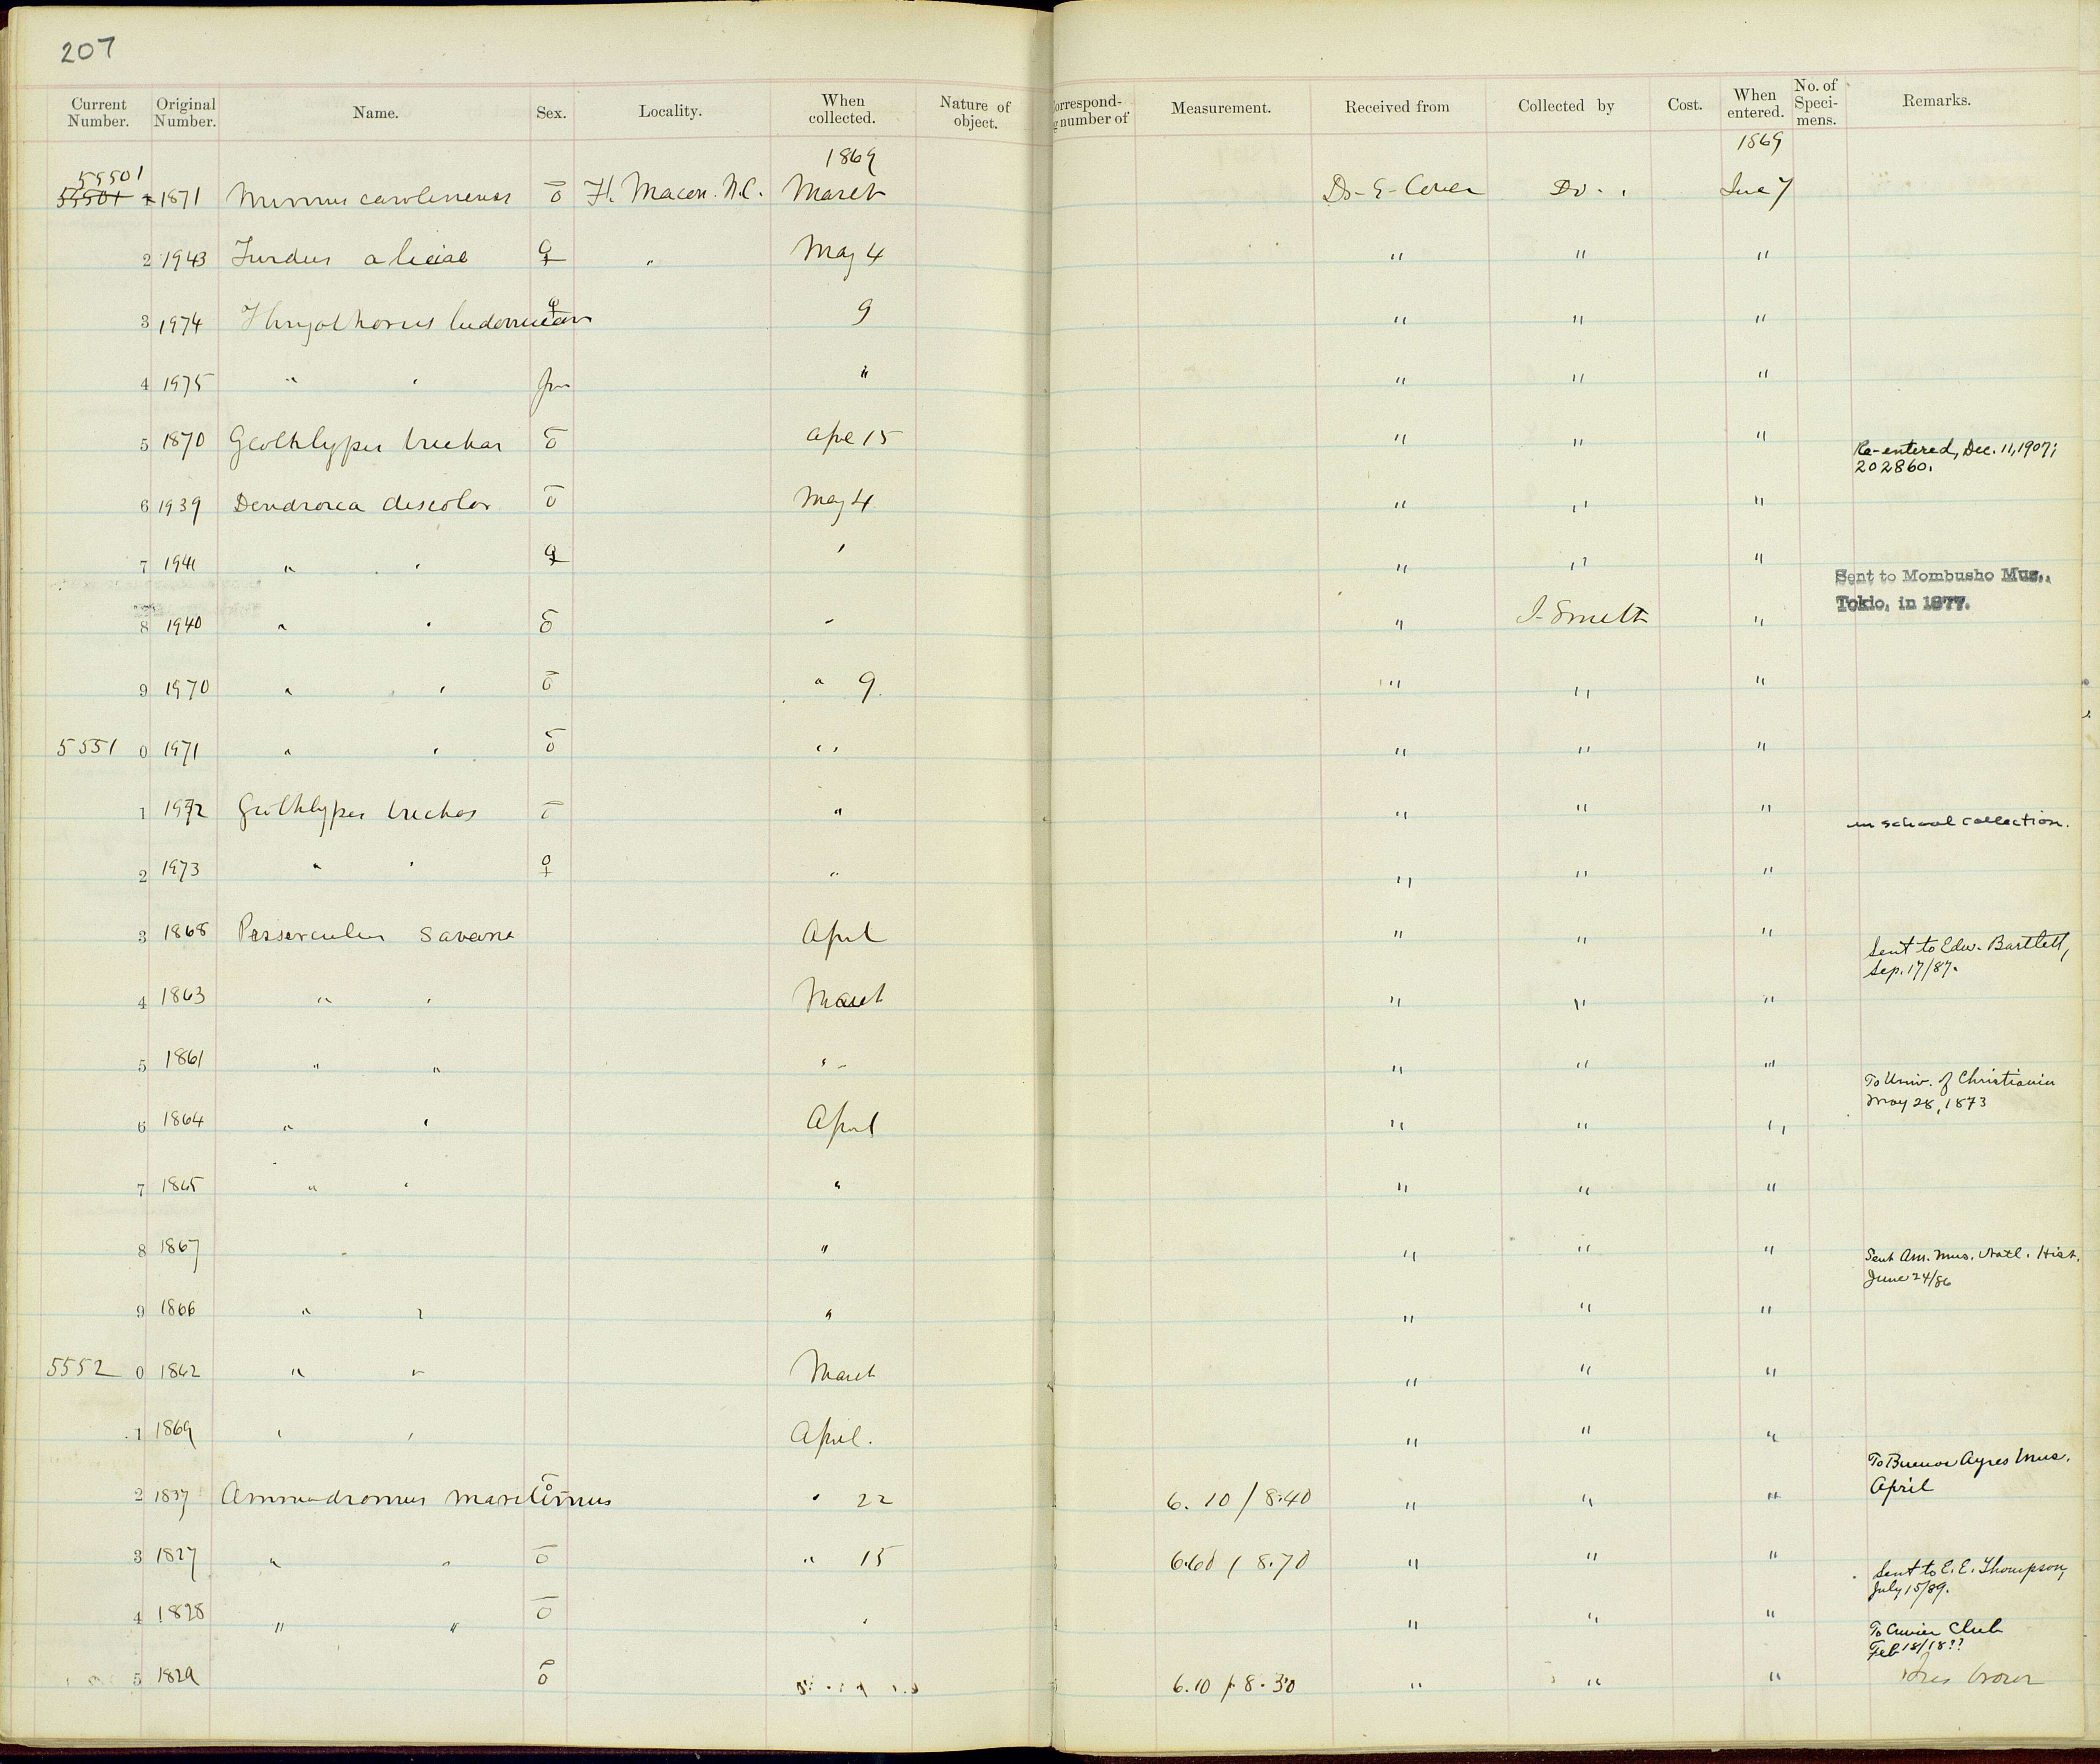 207
Current Number. Original Number. Name. Sex. Locality. When collected. Nature of object. orrespond- g number of Measurement. Received from Collected by Cost. When entered. No. of Speci- mens. Remarks.
1869 1869
55501
55501 1871 Mimus carolinensis ō Ft. Macon. N.C. March Dr. E. Coues Do. June 7
2 1943 Turdus aliciae ♀ " May 4 " " "
3 1974 Thryothorus ludovician ♀ 9 " " "
4 1975 " " juv " " " "
5 1870 Geothlypis trichas ō Apl 15 " " "
Re-entered, Dec. 11, 1907;
202860.
6 1939 Dendroica discolor ō May 4 " " "
7 1941 " " ♀ ' " " "
Sent to Mombusho Mus.,
Tokio, in 1877.
8 1940 " " ō " " I. Smith "
9 1970 " " ō " 9. " " "
5551 0 1971 " " ō " " " "
1 1972 Geothlypis trichas ō " " " "
in school collection.
2 1973 " " ♀ " " " "
3 1868 Passerculus savana April " " "
Sent to Edw. Bartlett,
Sep. 17/87.
4 1863 " " March " " "
5 1861 " " " " " "
To Univ. of Christiania
May 28, 1873
6 1864 " " April " " "
7 1865 " " " " " "
8 1867 " " " " "
Sent Am. Mus. Natl. Hist.
June 24/86
9 1866 " " " " " "
5552 0 1862 " " March " " "
1 1869 " " April. " " "
To Buenos Ayres Mus.
April
2 1837 Ammodromus maritimus ō " 22 6.10 / 8.40 " " "
3 1827 " " ō " 15 6.60 / 8.70 " " "
Sent to E. E. Thompson,
July 15/89.
4 1828 " " ō " " " "
To Cuvier Club
Feb 18/18??
5 1829 ō 6.10 / 8.30 " " "